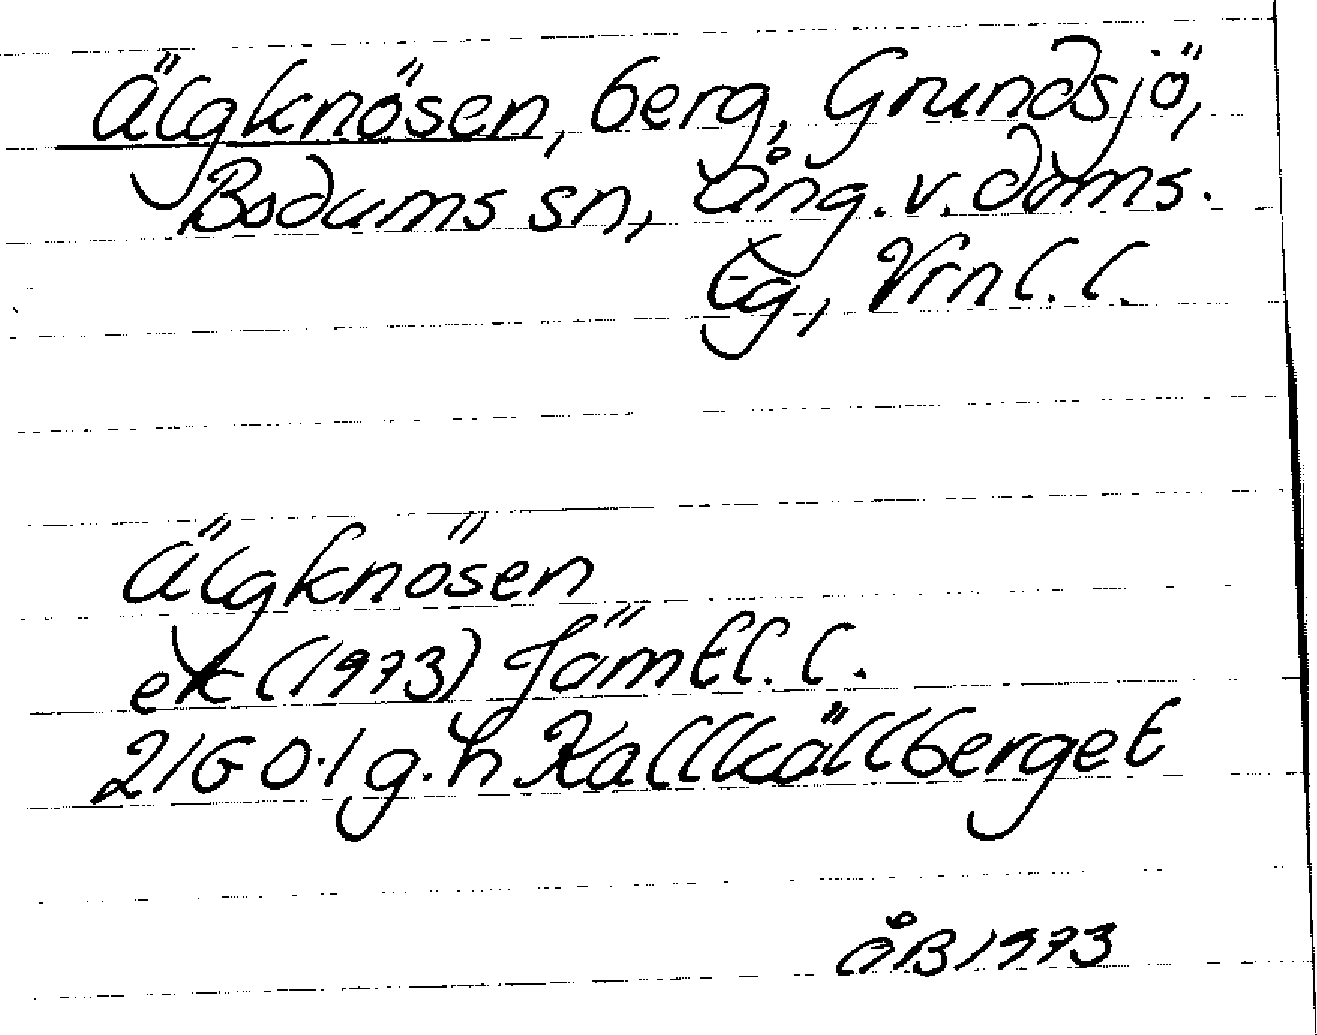 Älgknösen, berg, Grundsjö,
Bodums sn, Ång. v. doms.
tg, Vrnl. l.
Älgknösen
ek (1973) Jämtl. l.
21G 0·1 g.h Kallkällberget
ÅB 1973